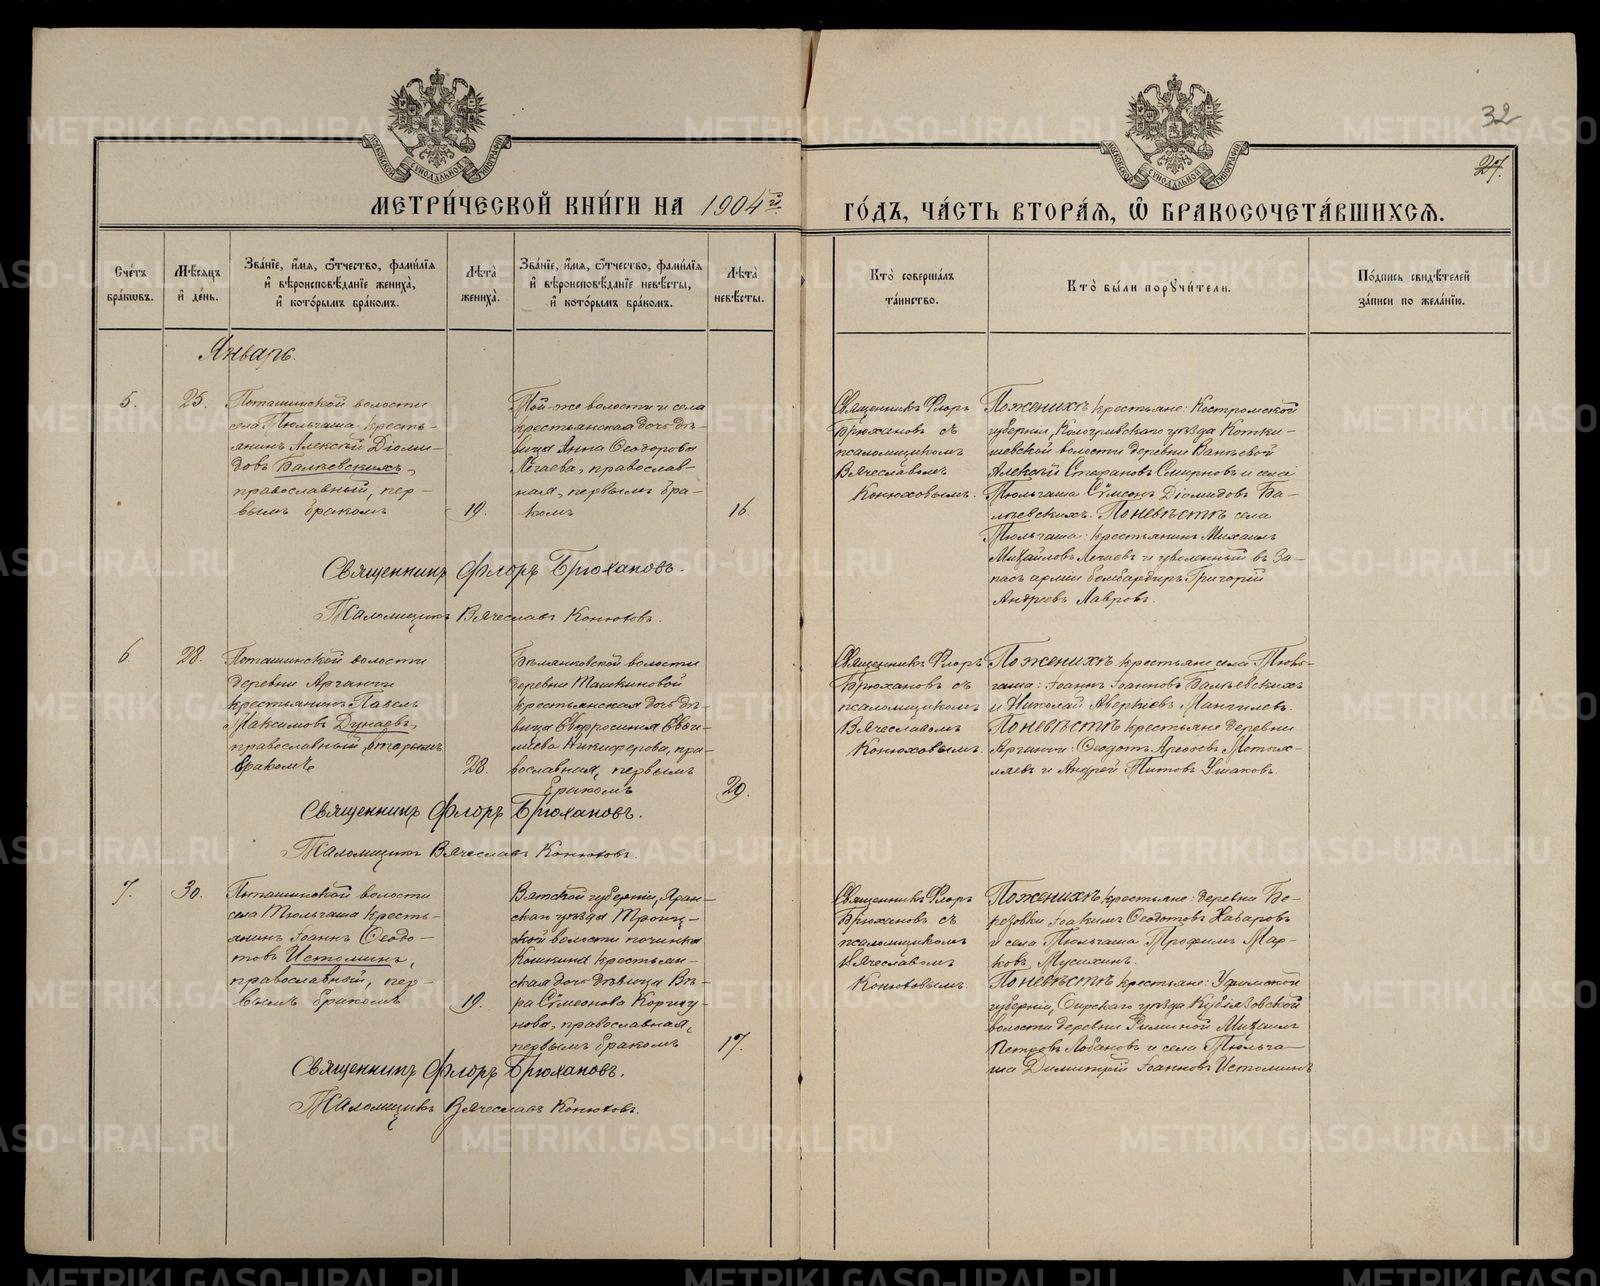 32
27.
МЕТРИ́ЧЕСКОЙ КНИ́ГИ НА 1904й
ГО́ДЪ, ЧА́СТЬ ВТОРА́Я, Ѡ БРАКОСОЧЕТА́ВШИХСЯ.
Сче́тъ бра́кѡвъ.
Мѣ́сяцъ и҆ де́нь.
Зва́нїе, и҆́мя, ѻ҆́тчество, фами́лїя
и҆ вѣроисповѣ́данїе жениха̀,
и҆ кото́рымъ бра́комъ.
Лѣ́та жениха̀.
Зва́нїе, и҆́мя, ѻ҆́тчество, фами́лїя
и҆ вѣроисповѣ́данїе невѣ́сты,
и҆ кото́рымъ бра́комъ.
Лѣ́та невѣ́сты.
Кто̀ соверша́лъ
та́инство.
Кто̀ бы́ли порꙋчи́тели.
По́дпись свидѣ́телей
за́писи по жела́нїю.
Январь.
5.
25.
Поташинской волости
села Тюльгаша кресть-
янинъ Алексѣй Діоми-
довъ Балѣевскихъ,
православный, пер-
вымъ бракомъ
19.
Той-же волости и села
крестьянская дочь дѣ-
вица Анна Ѳеодорова
Легаева, православ-
ная, первымъ бра-
комъ
16.
Священникъ Флоръ
Брюхановъ съ
псаломщикомъ
Вячеславомъ
Конюховымъ.
По женихѣ крестьяне: Костромской
губерніи, Кологривскаго уѣзда Котки-
шевской волости деревни Ванѣевой
Алексѣй Стефановъ Смирновъ и села
Тюльгаша Сѵмеонъ Діомидовъ Ба-
лѣевскихъ. По невѣстѣ села
Тюльгаша: крестьянинъ Михаилъ
Михайловъ Легаевъ и уволенный въ за-
пасъ арміи бомбардиръ Григорій
Андреевъ Лавровъ.
Священникъ Флоръ Брюхановъ.
Псаломщикъ Вячеславъ Конюховъ.
6
28.
Поташинской волости
деревни Арганчи
крестьянинъ Павелъ
Максимовъ Дунаевъ,
православный, вторымъ
бракомъ
28.
волости
деревни Ташкиновой
крестьянская дочь дѣ-
вица Евфросинія Евѳи-
міева Никифорова, пра-
вославная, первымъ
бракомъ
20.
Священникъ Флоръ
Брюхановъ съ
псаломщикомъ
Вячеславомъ
Конюховымъ.
По женихѣ крестьяне села Тюль-
гаша: Іоаннъ Іоанновъ Балѣевскихъ
и Николай Аверкіевъ Мангилевъ.
По невѣстѣ крестьяне деревни
Арганчи: Ѳеодотъ
и Андрей Титовъ Ушаковъ.
Священникъ Флоръ Брюхановъ.
Псаломщикъ Вячеславъ Конюховъ.
7.
30.
Поташинской волости
села Тюльгаша кресть-
янинъ Іоаннъ Ѳеодо-
товъ Истоминъ,
православный, пер-
вымъ бракомъ
19.
Вятской губерніи, Яран-
скаго уѣзда Троиц-
кой волости починка
Кошкина крестьян-
ская дочь дѣвица Вѣ-
ра Сѵмеонова
православная,
первымъ бракомъ
17.
Священникъ Флоръ
Брюхановъ съ
псаломщикомъ
Вячеславомъ
Конюховымъ.
По женихѣ крестьяне: деревни Бе-
резовки Іоакимъ Ѳеодотовъ Хабаровъ
и села Тюльгаша Трофимъ Мар-
ковъ Мусихинъ.
По невѣстѣ крестьяне: Уфимской
губерніи, Бирскаго уѣзда Кубіязовской
волости деревни Михаилъ
Петровъ Лобановъ и села Тюльга-
ша Димитрій Іоанновъ Истоминъ.
Священникъ Флоръ Брюхановъ.
Псаломщикъ Вячеславъ Конюховъ.
METRIKI.GASO-URAL.RU